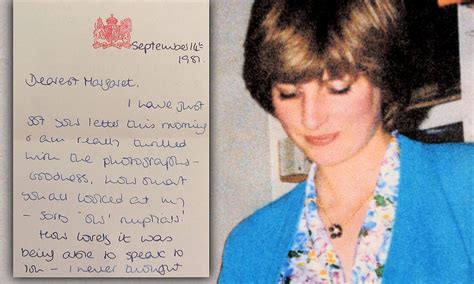 September 14th
1981.
Dearest Margaret,
I have just
got your letter this morning
& am really thrilled
with the photographs -
Goodness, how smart
you all looked at my
- sorry 'our' nuptials!
How lovely it was
being able to speak to
you - I never thought